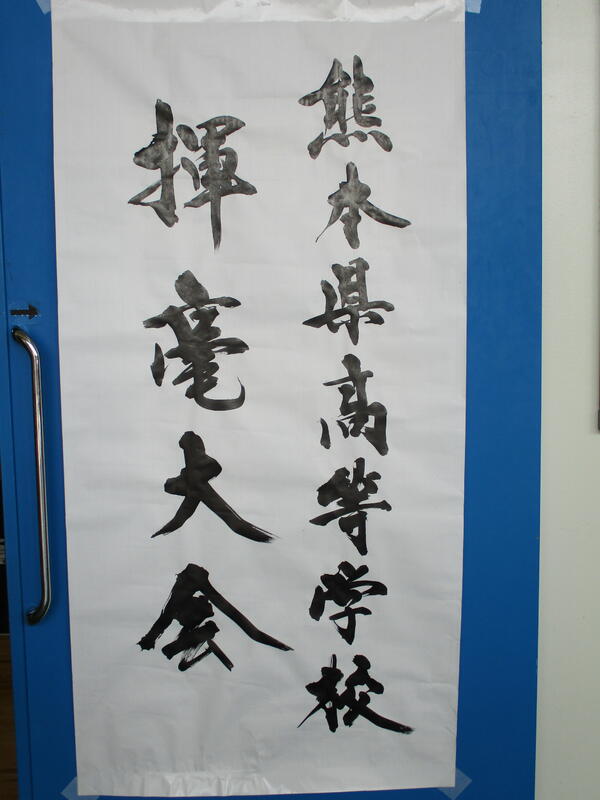 熊本県高等学校
揮毫大会